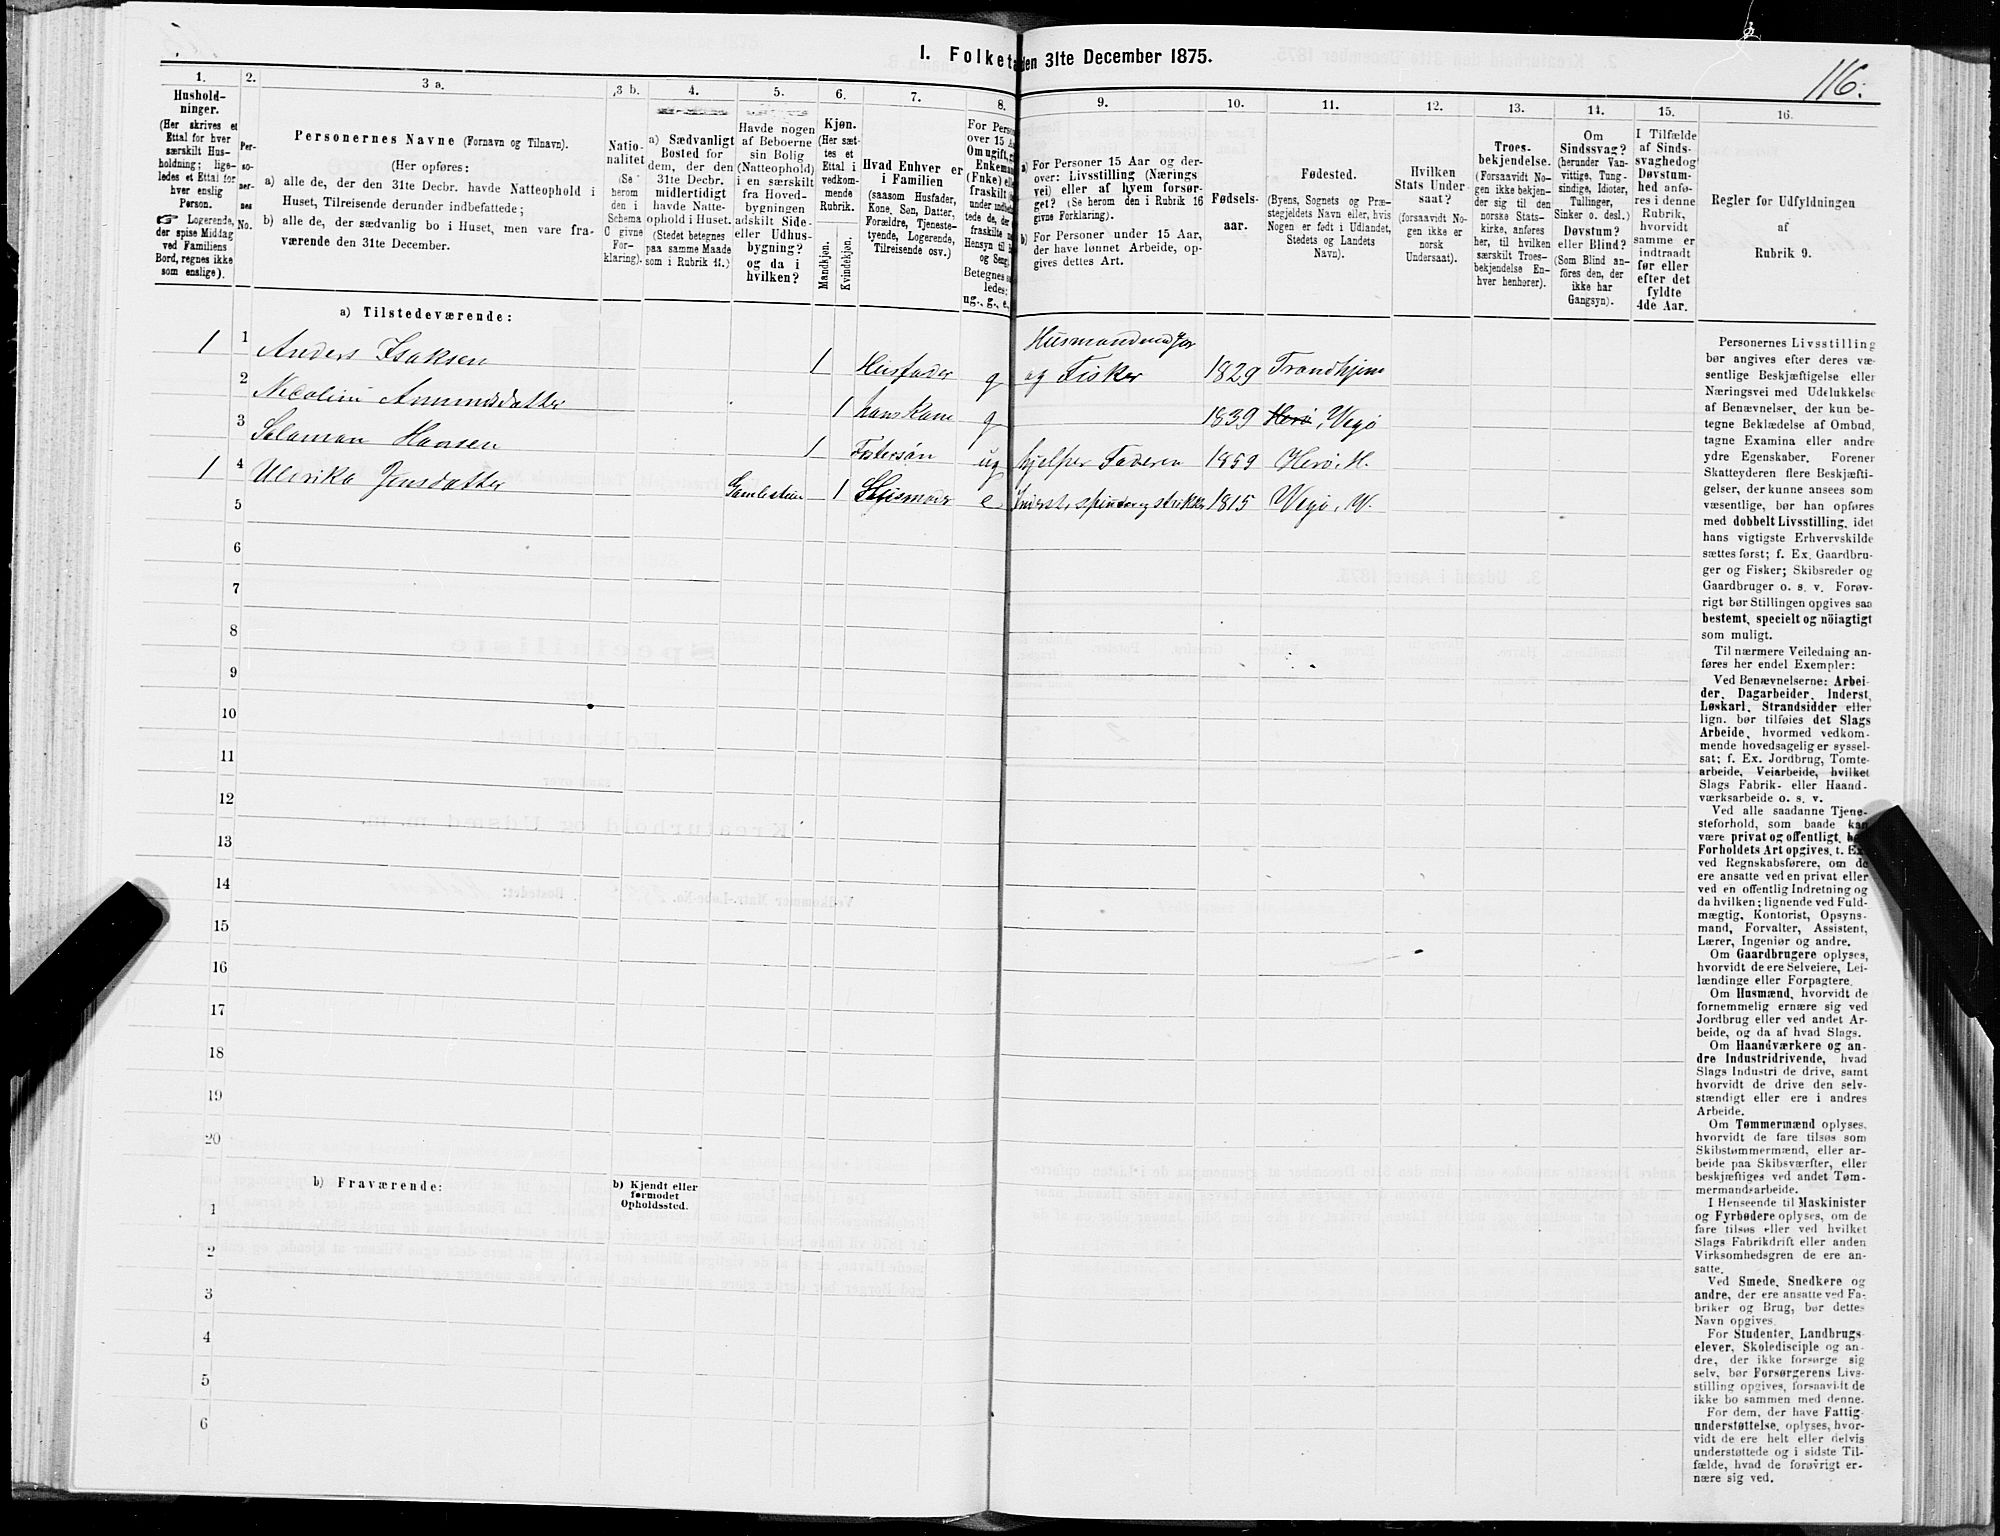 I. Folketa
den 31te December 1875.
116.
1.
Hushold-
ninger.
(Her skrives et
Ettal for hver
særskilt Hus-
holdning; lige-
ledes et Ettal for
hver enslig
Person.
Logerende,
der spise Middag
ved Familiens
Bord, regnes ikke
som enslige).
2.
Per-
so-
ner-
nes
No.
3 a.
Personernes Navne (Fornavn og Tilnavn).
(Her opføres:
a) alle de, der den 31te Decbr. havde Natteophold i
Huset, Tilreisende derunder indbefattede;
b) alle de, der sædvanlig bo i Huset, men vare fra-
værende den 31te December.
3 b.
Natio-
nalitet
(Se
herom
den i
Schema
C givne
For-
klaring).
4.
a) Sædvanligt
Bosted for
dem, der den
31te Decbr.
midlertidigt
havde Natte-
ophold i Huset.
(Stedet betegnes
paa samme Maade
som i Rubrik 11.)
5.
Havde nogen
af Beboerne
sin Bolig
(Natteophold)
i en særskilt
fra Hoved-
bygningen
adskilt Side-
eller Udhus-
bygning?
og da i
hvilken?
6.
Kjøn.
(Her sæt-
tes et
Ettal i
vedkom-
mende
Rubrik.
Mandkjøn.
Kvindekjøn.
7.
Hvad Enhver er
i Familien
(saasom Husfader,
Kone, Søn, Datter,
Forældre, Tjeneste-
tyende, Logerende,
Tilreisende osv.)
8.
For Perso
over 15 A
Om ugift, g
Enkemand
(Enke) elle
fraskilt (
under indbe
tede de, der
fraskilte m
Hensyn til B
og Seng)
Betegnes s
ledes:
ug., g., e.,
9.
a) For Personer 15 Aar og der-
over: Livsstilling (Nærings
vei) eller af hvem forsør-
get? (Se herom den i Rubrik 16
givne Forklaring).
b) For Personer under 15 Aar,
der have lønnet Arbeide, op-
gives dettes Art.
10.
Fødsels-
aar.
11.
Fødested.
(Byens, Sognets og Præ-
stegjeldets Navn eller, hvis
Nogen er født i Udlandet,
Stedets og Landets
Navn).
12.
Hvilken
Stats Under
saat?
(forsaavidt No-
gen ikke er
norsk
Undersaat).
13.
Troes-
bekjendelse.
(Forsaavidt No-
gen ikke bekjen-
der sig til den
norske Stats-
kirke, anføres
her, til hvilken
særskilt Troes-
bekjendelse En-
hver henhører).
14.
Om
Sindssvag?
(herunder Van-
vittige, Tung-
sindige, Idioter,
Tullinger,
Sinker o. desl.)
Døvstum?
eller Blind?
(Som Blind an-
føres den, der
ikke har
Gangsyn).
15.
I Tilfælde
af Sinds-
svaghedog
Døvstum-
hed anfø-
res i denne
Rubrik,
hvorvidt
samme er
indtraadt
før eller
efter det
fyldte
4de Aar.
16.
Regler for Udfyldningen
af
Rubrik 9.
a) Tilstedeværende:
1 1 Anders Isaksen 1 Husfader g Husmand med Jor
og Fisker 1829 Trondhjem
2 Nicolin Amundsdatter 1 hans Kone g 1839 Herø, Vegø
3 Salamon Hansen 1 Fostersøn ug hjelper Faderen 1859 Herø, H.
1 4 Ulrrika Jensdatter 1 e Inderst, spinder og strikker 1815 Vegø, W.
5
6
7
8
9
10
11
12
13
14
15
16
17
18
19
20
b) Fraværende:
b) Kjendt eller
formodet
Opholdssted.
1
2
3
4
5
6
Personernes Livsstilling
bør angives efter deres væ-
sentlige Beskjæftigelse eller
Næringsvei med Udelukkelse
af Benævnelser, der kun be-
tegne Beklædelse af Ombud,
tagne Examina eller andre
ydre Egenskaber. Forener
Skatteyderen flere Beskjæfti-
gelser, der kunne ansees som
væsentlige, bør han opføres
med dobbelt Livsstilling, idet
hans vigtigste Erhvervskilde
sættes først; f. Ex. Gaardbru-
ger og Fisker; Skibsreder og
Gaardbruger o. s. v. Forøv-
rigt bør Stillingen opgives saa
bestemt, specielt og nöiagtigt
som muligt.
Til nærmere Veiledning an-
føres her endel Exempler:
Ved Benævnelserne: Arbei-
der, Dagarbeider, Inderst,
Løskarl, Strandsidder eller
lign. bør tilføies det Slags
Arbeide, hvormed vedkom-
mende hovedsagelig er syssel-
sat; f. Ex. Jordbrug, Tomte-
arbeide, Veiarbeide, hvilket
Slags Fabrik- eller Haand-
værksarbeide o. s. v.
Ved alle saadanne Tjene-
steforhold, som baade kan
være privat og offentligt, bør
Forholdets Art opgives, t. Ex.
ved Regnskabsførere, om de
ere ansatte ved en privat eller
ved en offentlig Indretning og
da hvilken; lignende ved Fuld-
mægtig, Kontorist, Opsyns-
mand, Forvalter, Assistent,
Lærer, Ingeniør og andre.
Om Gaardbrugere oplyses,
hvorvidt de ere Selveiere, Lei-
lændinge eller Forpagtere.
Om Husmænd, hvorvidt de
fornemmelig ernære sig ved
Jordbrug eller ved andet Ar-
beide, og da af hvad Slags.
Om Haandværkere og an-
dre Industridrivende, hvad
Slags Industri de drive, samt
hvorvidt de drive den selv-
stændigt eller ere i andres
Arbeide.
Om Tømmermænd oplyses,
hvorvidt de fare tilsøs som
Skibstømmermænd, eller ar-
beide paa Skibsværfter, eller
beskjæftiges ved andet Tøm-
mermandsarbeide.
I Henseende til Maskinister
og Fyrbødere oplyses, om de
fare tilsøs eller ved hvilket
Slags Fabrikdrift eller anden
Virksomhedsgren de ere an-
satte.
Ved Smede, Snedkere og
andre, der ere ansatte ved Fa-
briker og Brug, bør dettes
Navn opgives.
For Studenter, Landbrugs-
elever, Skoledisciple og an-
dre, der ikke forsørge sig
selv, bør Forsørgerens Livs-
stilling opgives, forsaavidt de
ikke bo sammen med denne.
For dem, der have Fattig-
understøttelse, oplyses, hvor-
vidt de ere helt eller delvis
understøttede og i sidste Til-
fælde, hvad de forøvrigt er-
nære sig ved.